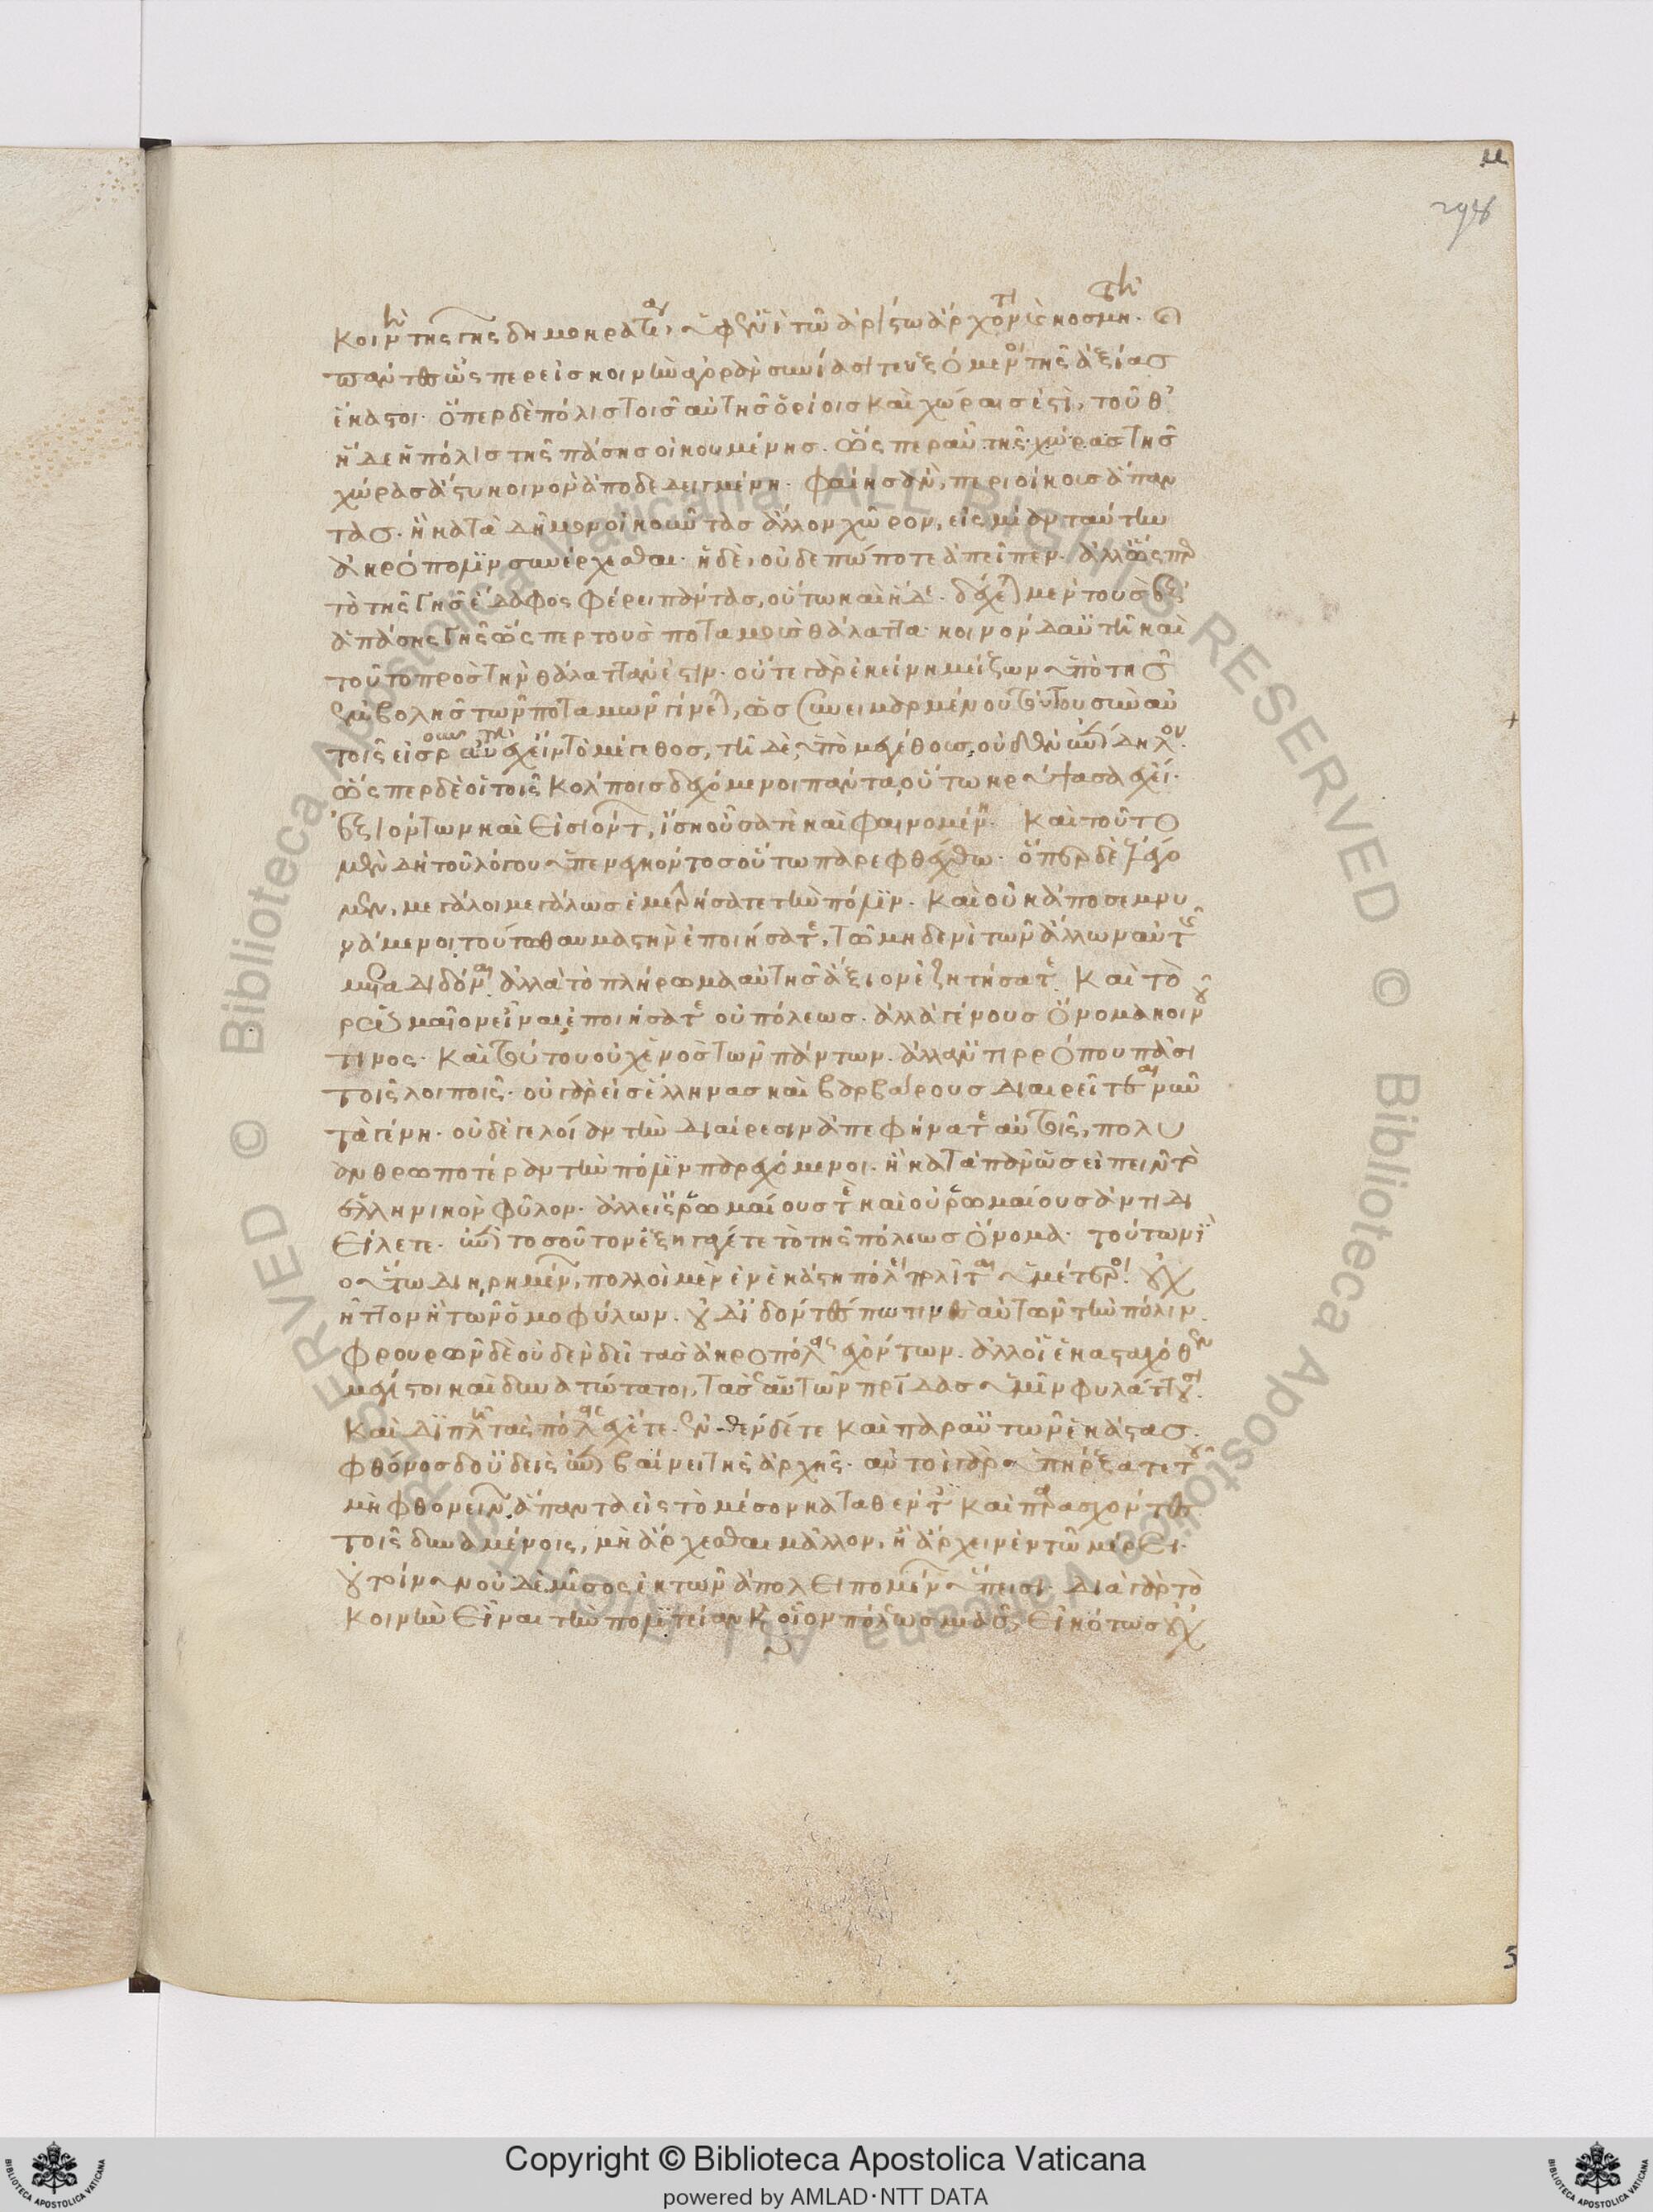 κοινὴ τῆς γῆς δημοκρατία, ὑφ' ἑνὶ τῷ ἀρίστῳ ἄρχοντι καὶ κοσμητῇ. καὶ
πάντες ὥσπερ εἰς κοινὴν ἀγορὰν συνίασι τευξόμενοι τῆς ἀξίας
ἕκαστοι. ὅπερ δὲ πόλις τοῖς αὑτῆς ὁρίοις καὶ χώραις ἐστὶ, τοῦθ'
ἥδε ἡ πόλις τῆς πάσης οἰκουμένης. ὥσπερ αὖ τῆς χώρας τῆς
χώρας ἄστυ κοινὸν ἀποδεδειγμένη. φαίης ἂν, περιοίκους ἅπαν
τας. ἢ κατὰ δῆμον οἰκοῦντας ἄλλον χῶρον, εἰς μίαν ταύτην
ἀκρόπολιν συνέρχεσθαι. ἡ δὲ, οὐδεπώποτε ἀπεῖπεν. ἀλλ' ὥσπερ
τὸ τῆς γῆς ἔδαφος φέρει πάντας, οὕτω καὶ ἥδε. δέχεται μὲν τοὺς ἐξ
ἁπάσης γῆς ὥσπερ τοὺς ποταμοὺς θάλαττα. κοινὸν δ' αὐτῇ καὶ
τοῦτο πρὸς τὴν θάλατταν ἐστίν. οὔτε γὰρ ἐκείνη μείζων ὑπὸ τῆς
ἐμβολῆς τῶν ποταμῶν γίνεται, ὡς συνειμαρμένου τούτου σὺν αὐ
τοῖς τὸ μέγεθος, τῇδε ὑπὸ μεγέθους, οὐδὲν ἐπίδηλον.
ὥσπερ δὲ οἱ τοῖς κόλποις δεχόμενοι πάντα, οὕτω κρύψασα ἔχει.
ἐξιόντων καὶ εἰσιόντων, ἴση οὖσά τε καὶ φαινομένη. καὶ τοῦτο
μὲν δὴ τοῦ λόγου ὑπενεγκόντος οὕτω παρεφθέγχθω. ὅπερ δὲ ἐλέγο
μεν, μεγάλοι μεγάλως ἐμετρήσατε τὴν πόλιν. καὶ οὐκ ἀποσεμνυ
νάμενοι, τούτῳ θαυμαστὴν ἐποιήσατε, τῷ μηδενὶ τῶν ἄλλων αὐτῆς
μεταδιδόναι. ἀλλὰ τὸ πλήρωμα αὐτῆς ἄξιον ἐζητήσατε. καὶ τὸ
ῥωμαῖον εἶναι, ἐποιήσατε οὐ πόλεως. ἀλλὰ γένους ὄνομα κοινοῦ
τινος. καὶ τούτου οὐχ ἑνὸς τῶν πάντων. ἀλλ' ἀντιρρόπου πᾶσι
τοῖς λοιποῖς. οὐ γὰρ εἰς ἕλληνας καὶ βαρβάρους διαιρεῖτε νῦν
τὰ γένη. οὐδὲ γελοίαν τὴν διαίρεσιν ἀπεφήνατε αὐτοῖς, πολυ
ανθρωποτέραν τὴν πόλιν παρεχόμενοι. ἢ κατὰ πᾶν ὡς εἰπεῖν τὸ
ἑλληνικὸν φῦλον. ἀλλ' εἰς ῥωμαίους τὲ καὶ οὐ ῥωμαίους ἀντιδι
είλετε. ἐπὶ τοσοῦτον ἐξηγάγετε τὸ τῆς πόλεως ὄνομα. τούτων δὲ
οὕτω διῃρημένων, πολλοὶ μὲν ἐν ἑκάστῃ πόλει πολῖται ὑμέτεροι οὐχ
ἧττον ἢ τῶν ὁμοφύλων. οὐδ' ἰδόντες πώ τινες αὐτῶν τὴν πόλιν.
φρουρῶν δὲ οὐδὲν δεῖ τὰς ἀκροπόλεις ἐχόντων. ἀλλ' οἱ ἑκασταχόθεν
μέγιστοι καὶ δυνατώτατοι, τὰς ἑαυτῶν πατρίδας ὑμῖν φυλάττουσι.
καὶ διπλῇ τὰς πόλεις ἔχετε. ἐνθένδέ τε καὶ παρ' αὐτῶν ἑκάστας.
φθόνος δ' οὐδεὶς ἐπιβαίνει τῆς ἀρχῆς. αὐτοὶ γὰρ ὑπήρξατε τοῦ
μὴ φθονεῖν, ἅπαντα εἰς τὸ μέσον καταθέντες καὶ παρασχόντες
τοῖς δυναμένοις, μὴ ἄρχεσθαι μᾶλλον, ἢ ἄρχειν ἐν τῷ μέρει.
οὐ τοίνυν οὐδὲ μῖσος ἐκ τῶν ἀπολειπομένων ὕπεισι. διὰ γὰρ τὸ
κοινὴν εἶναι τὴν πολιτείαν καὶ οἷον πόλεως μιᾶς, εἰκότως οὐχ
Copyright © Biblioteca Apostolica Vaticana
powered by AMLAD·NTT DATA